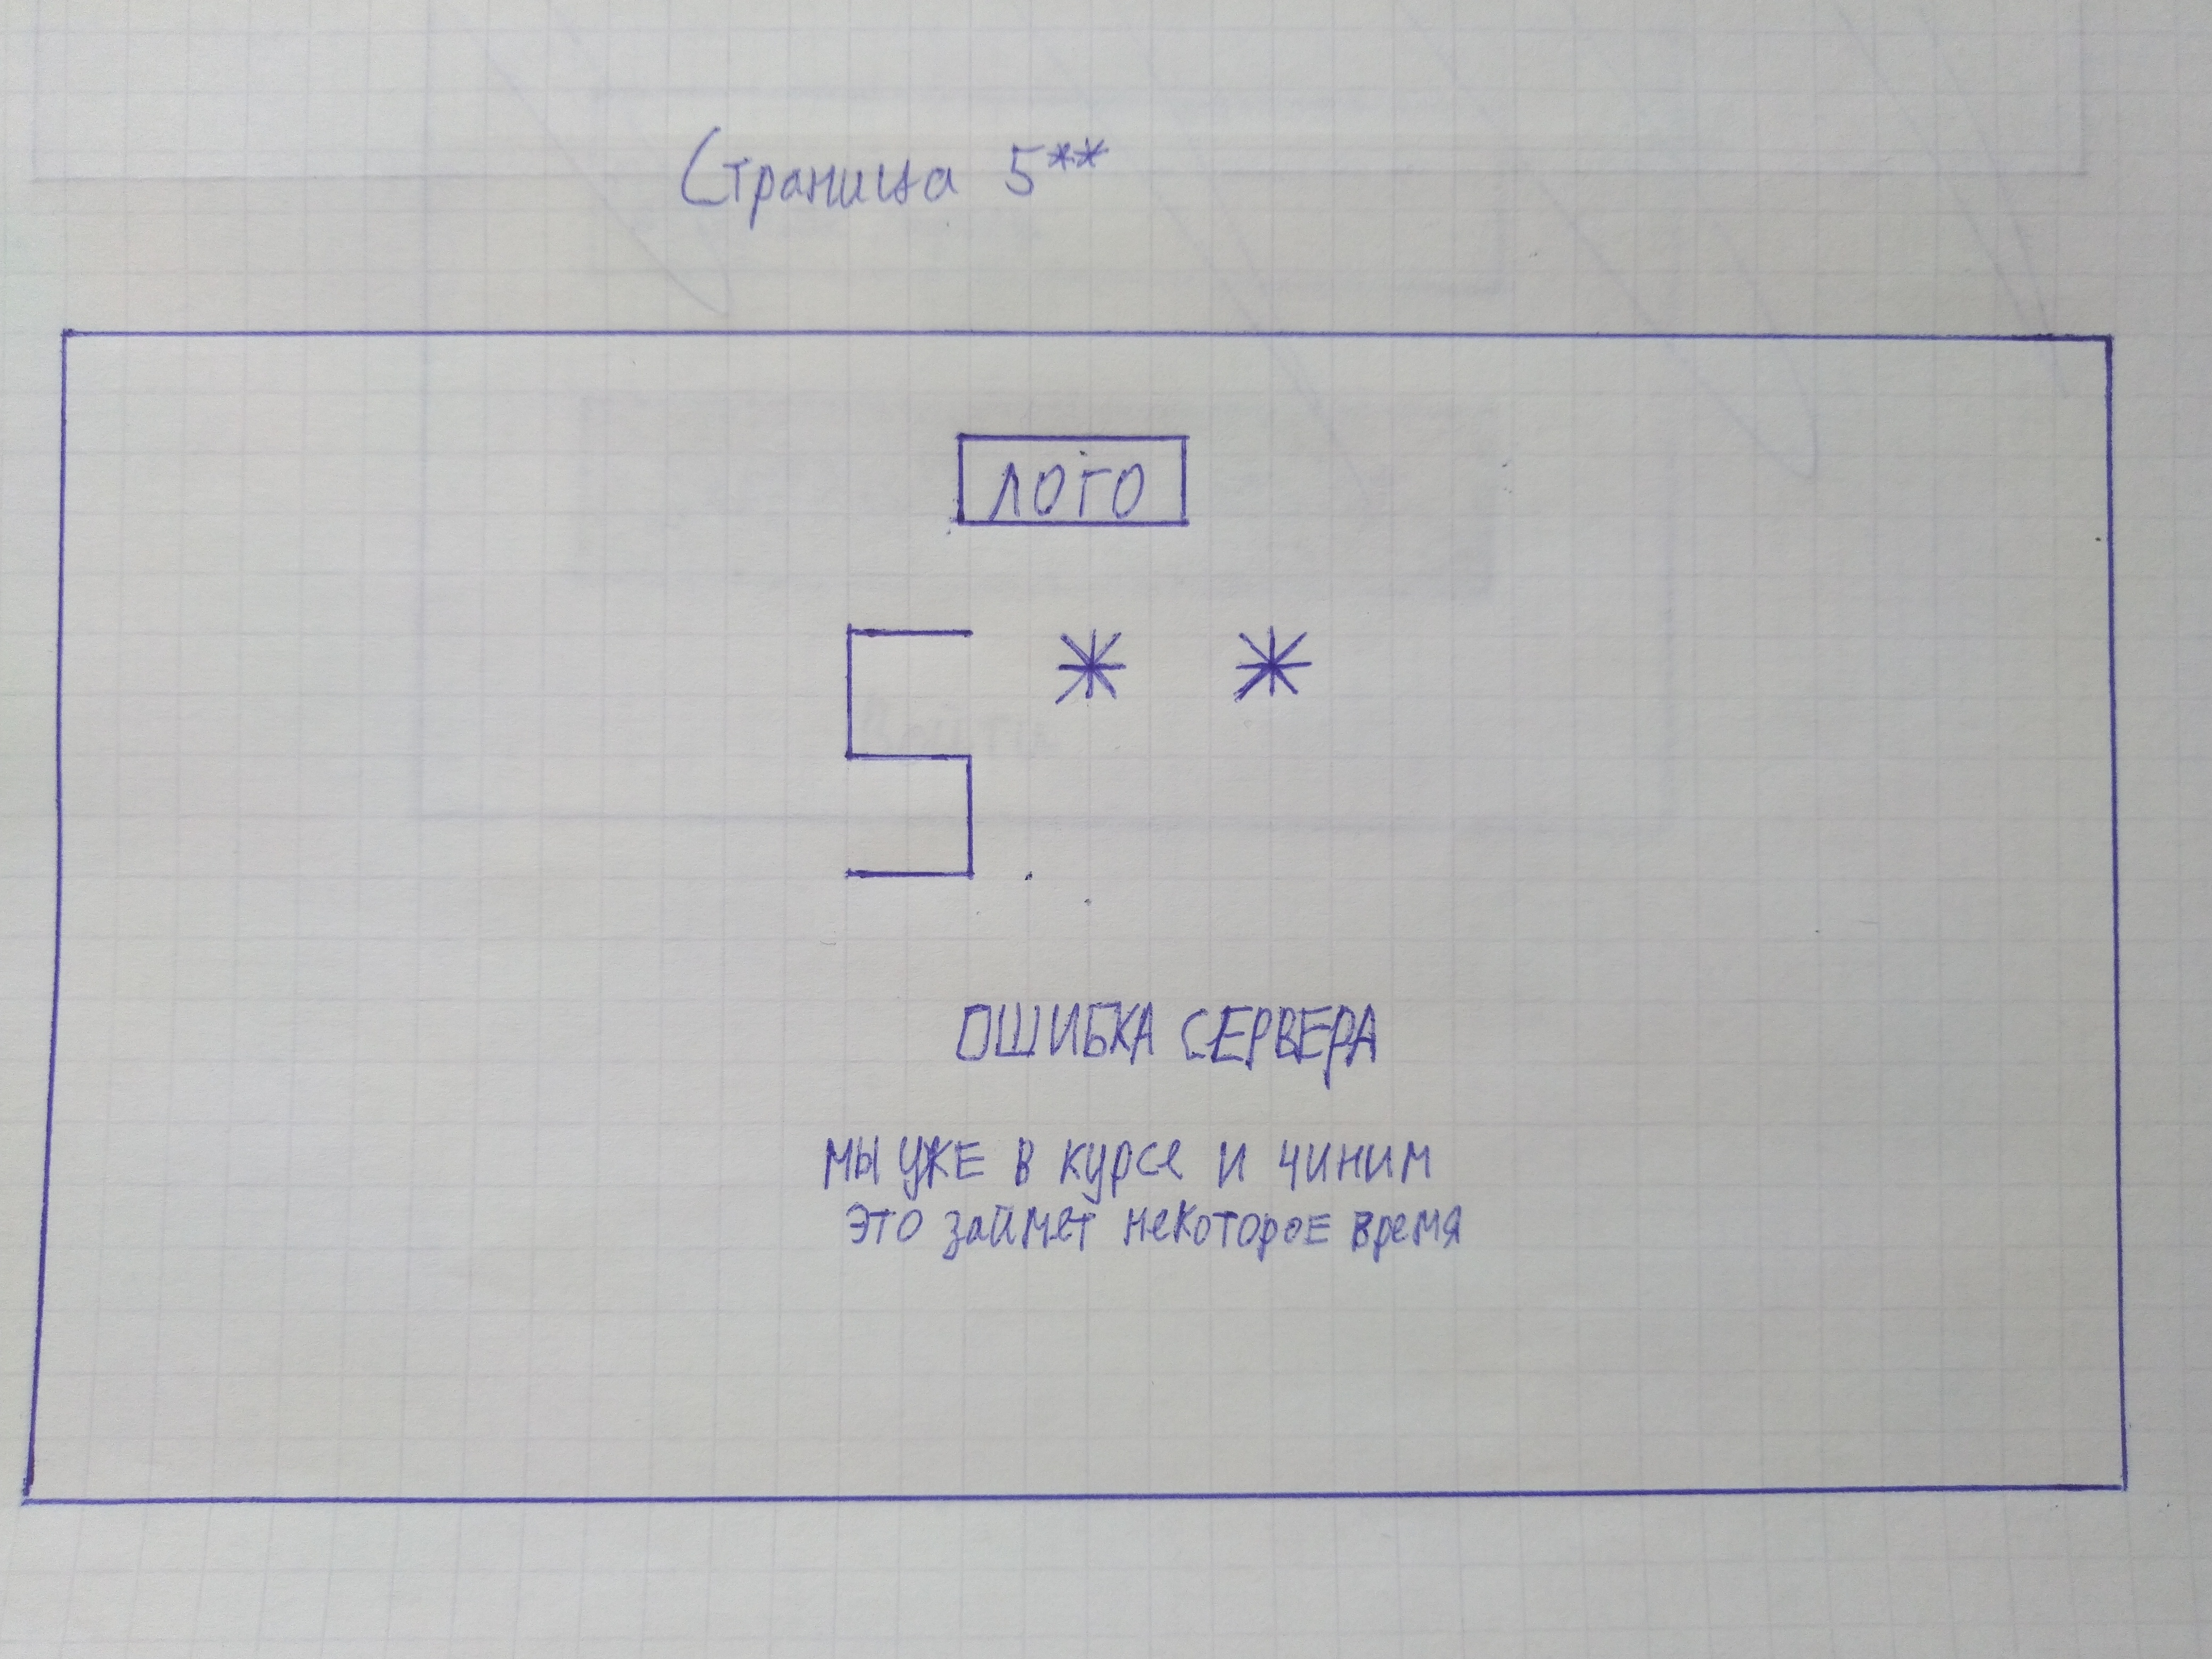 Страница 5**
ЛОГО
5 * *
ОШИБКА СЕРВЕРА
МЫ УЖЕ В КУРСЕ И ЧИНИМ
ЭТО займет некоторое время